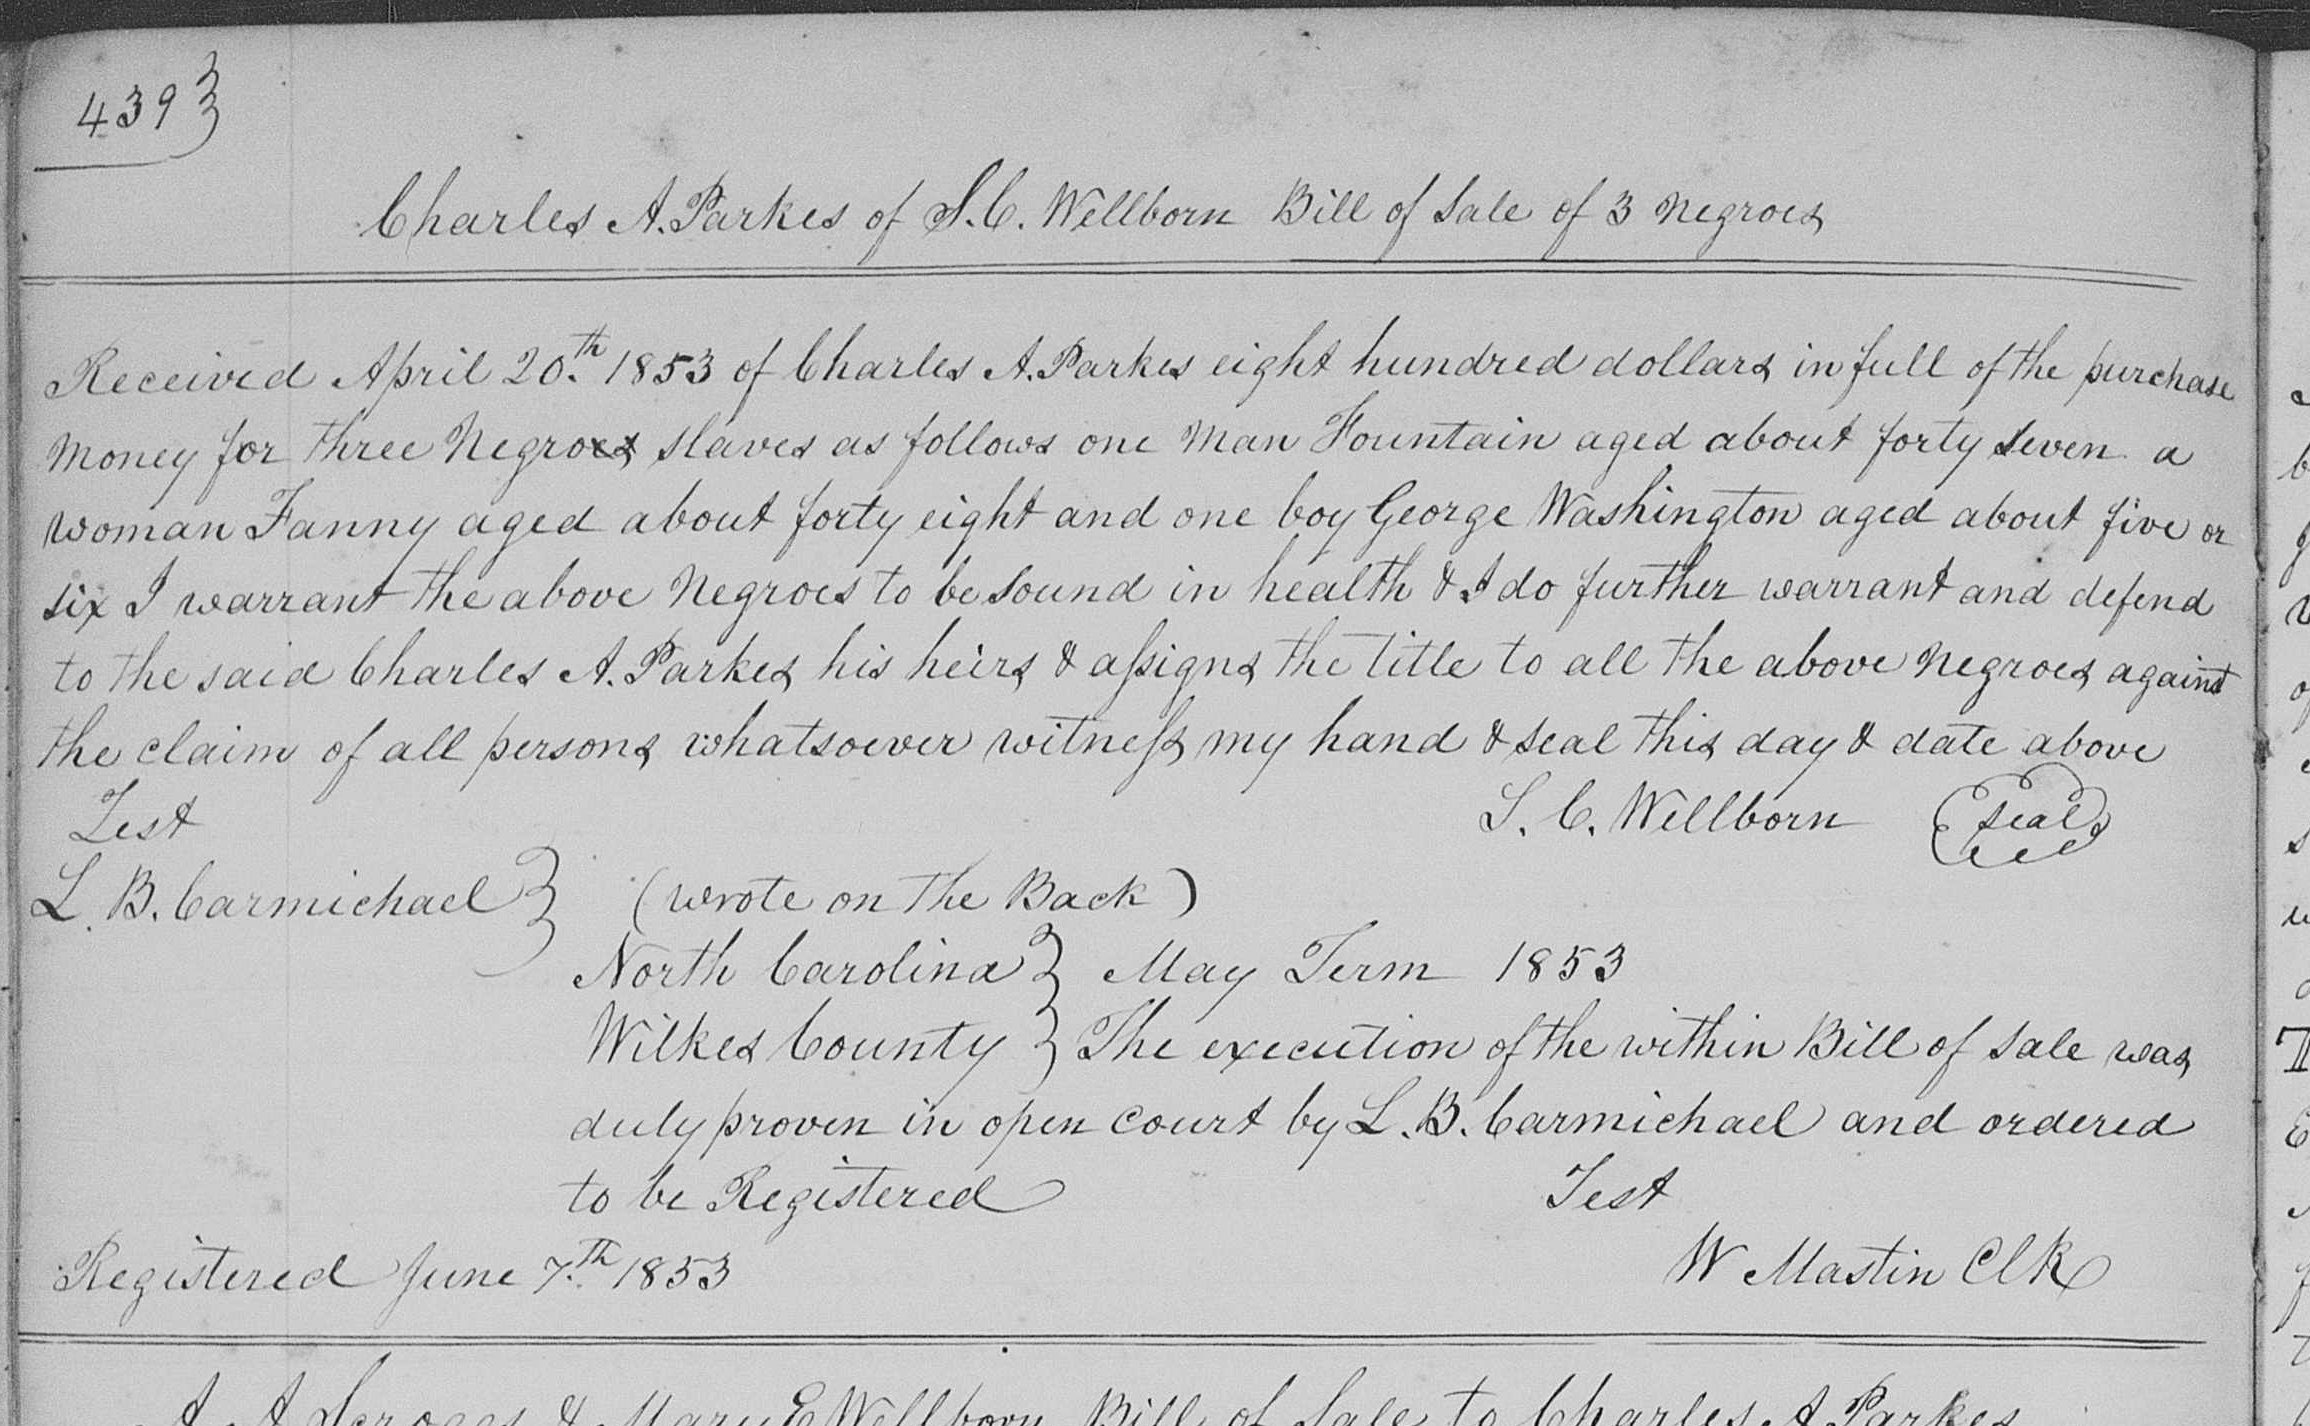 439
Charles A. Parkes of S. C. Wellborn Bill of Sale of 3 Negroes
Received April 20th 1853 of Charles A. Parkes eight hundred dollars in full of the purchase
Money for three Negroes slaves as follows one Man Fountain aged about forty seven a
woman Fanny aged about forty eight and one boy George Washington aged about five or
six I warrant the above Negroes to be sound in health & I do further warrant and defend
to the said Charles A. Parkes his heirs & assigns the title to all the above negroes against
the claim of all persons whatsoever witness my hand & seal this day & date above
Test
S. C. Wellborn seal
L. B. Carmichael (wrote on the Back)
North Carolina May Term 1853
Wilkes County The execution of the within Bill of Sale was
duly proven in open court by L. B. Carmichael and ordered
to be Registered Test
Registered June 7th 1853 W Mastin Clk
A. A. Scroggs & Mary E Wellborn Bill of Sale to Charles A Parkes